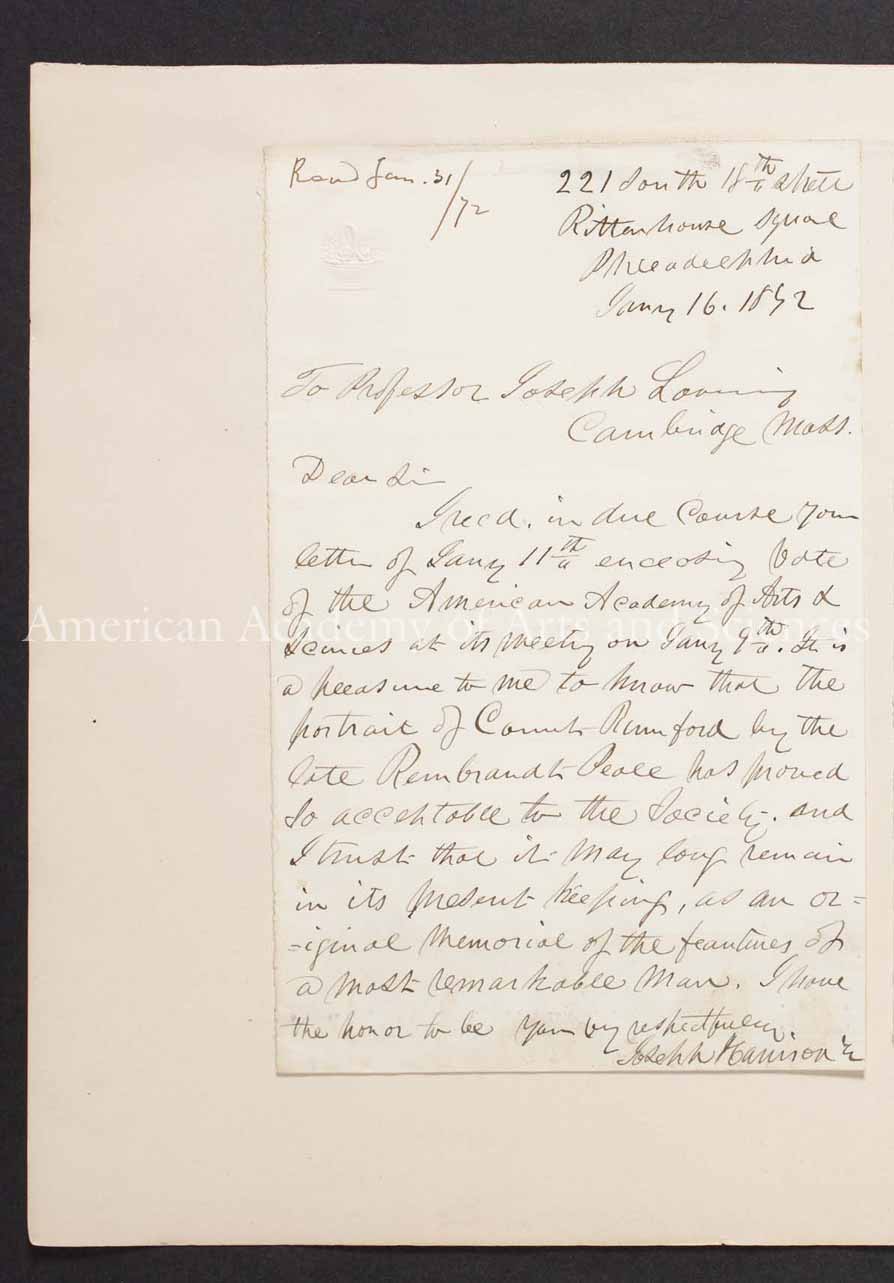 Read Jan. 31/72
221 South 18th Street
Rittenhouse Square
Philadelphia
Jany 16. 1872
To Professor Joseph Lovering
Cambridge Mass.
Dear Sir
I recd. in due Course your
letter of Jany 11th enclosing Vote
of the American Academy of Arts &
Sciences at its meeting on Jany 9th. It is
a pleasure to me to know that the
portrait of Count Rumford by the
late Rembrandt Peale has proved
so acceptable to the Society. and
I trust that it may long remain
in its present keeping, as an or=
=iginal memorial of the feautures of
a most remarkable man. I have
the honor to be your vy respectfully.
Joseph Harrison Jr
American Academy of Arts and Sciences